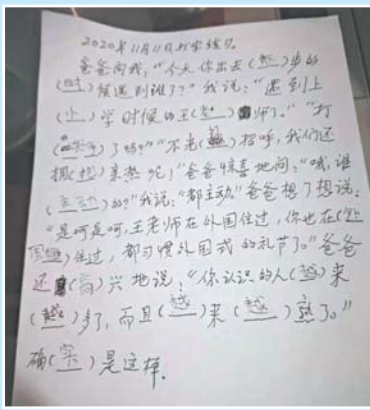 2020年11月11日打字练习。
爸爸问我："今天你出去(散)步的
(时)候遇到谁了?"我说:"遇到上
(小)学时候的王(老)师了。""打
了吗?""不光(打)招呼,我们还
拥(抱)亲热呢!"爸爸惊喜地问:"哦,谁
(主动)的?"我说:"都主动"爸爸想了想说:
"是呵是呵,王老师在外国住过,你也在(外
国)住过,都习惯外国式的礼节了。"爸爸
还(高)兴地说:"你认识的人(越)来
(越)多了,而且(越)来(越)熟了。"
确(实)是这样.